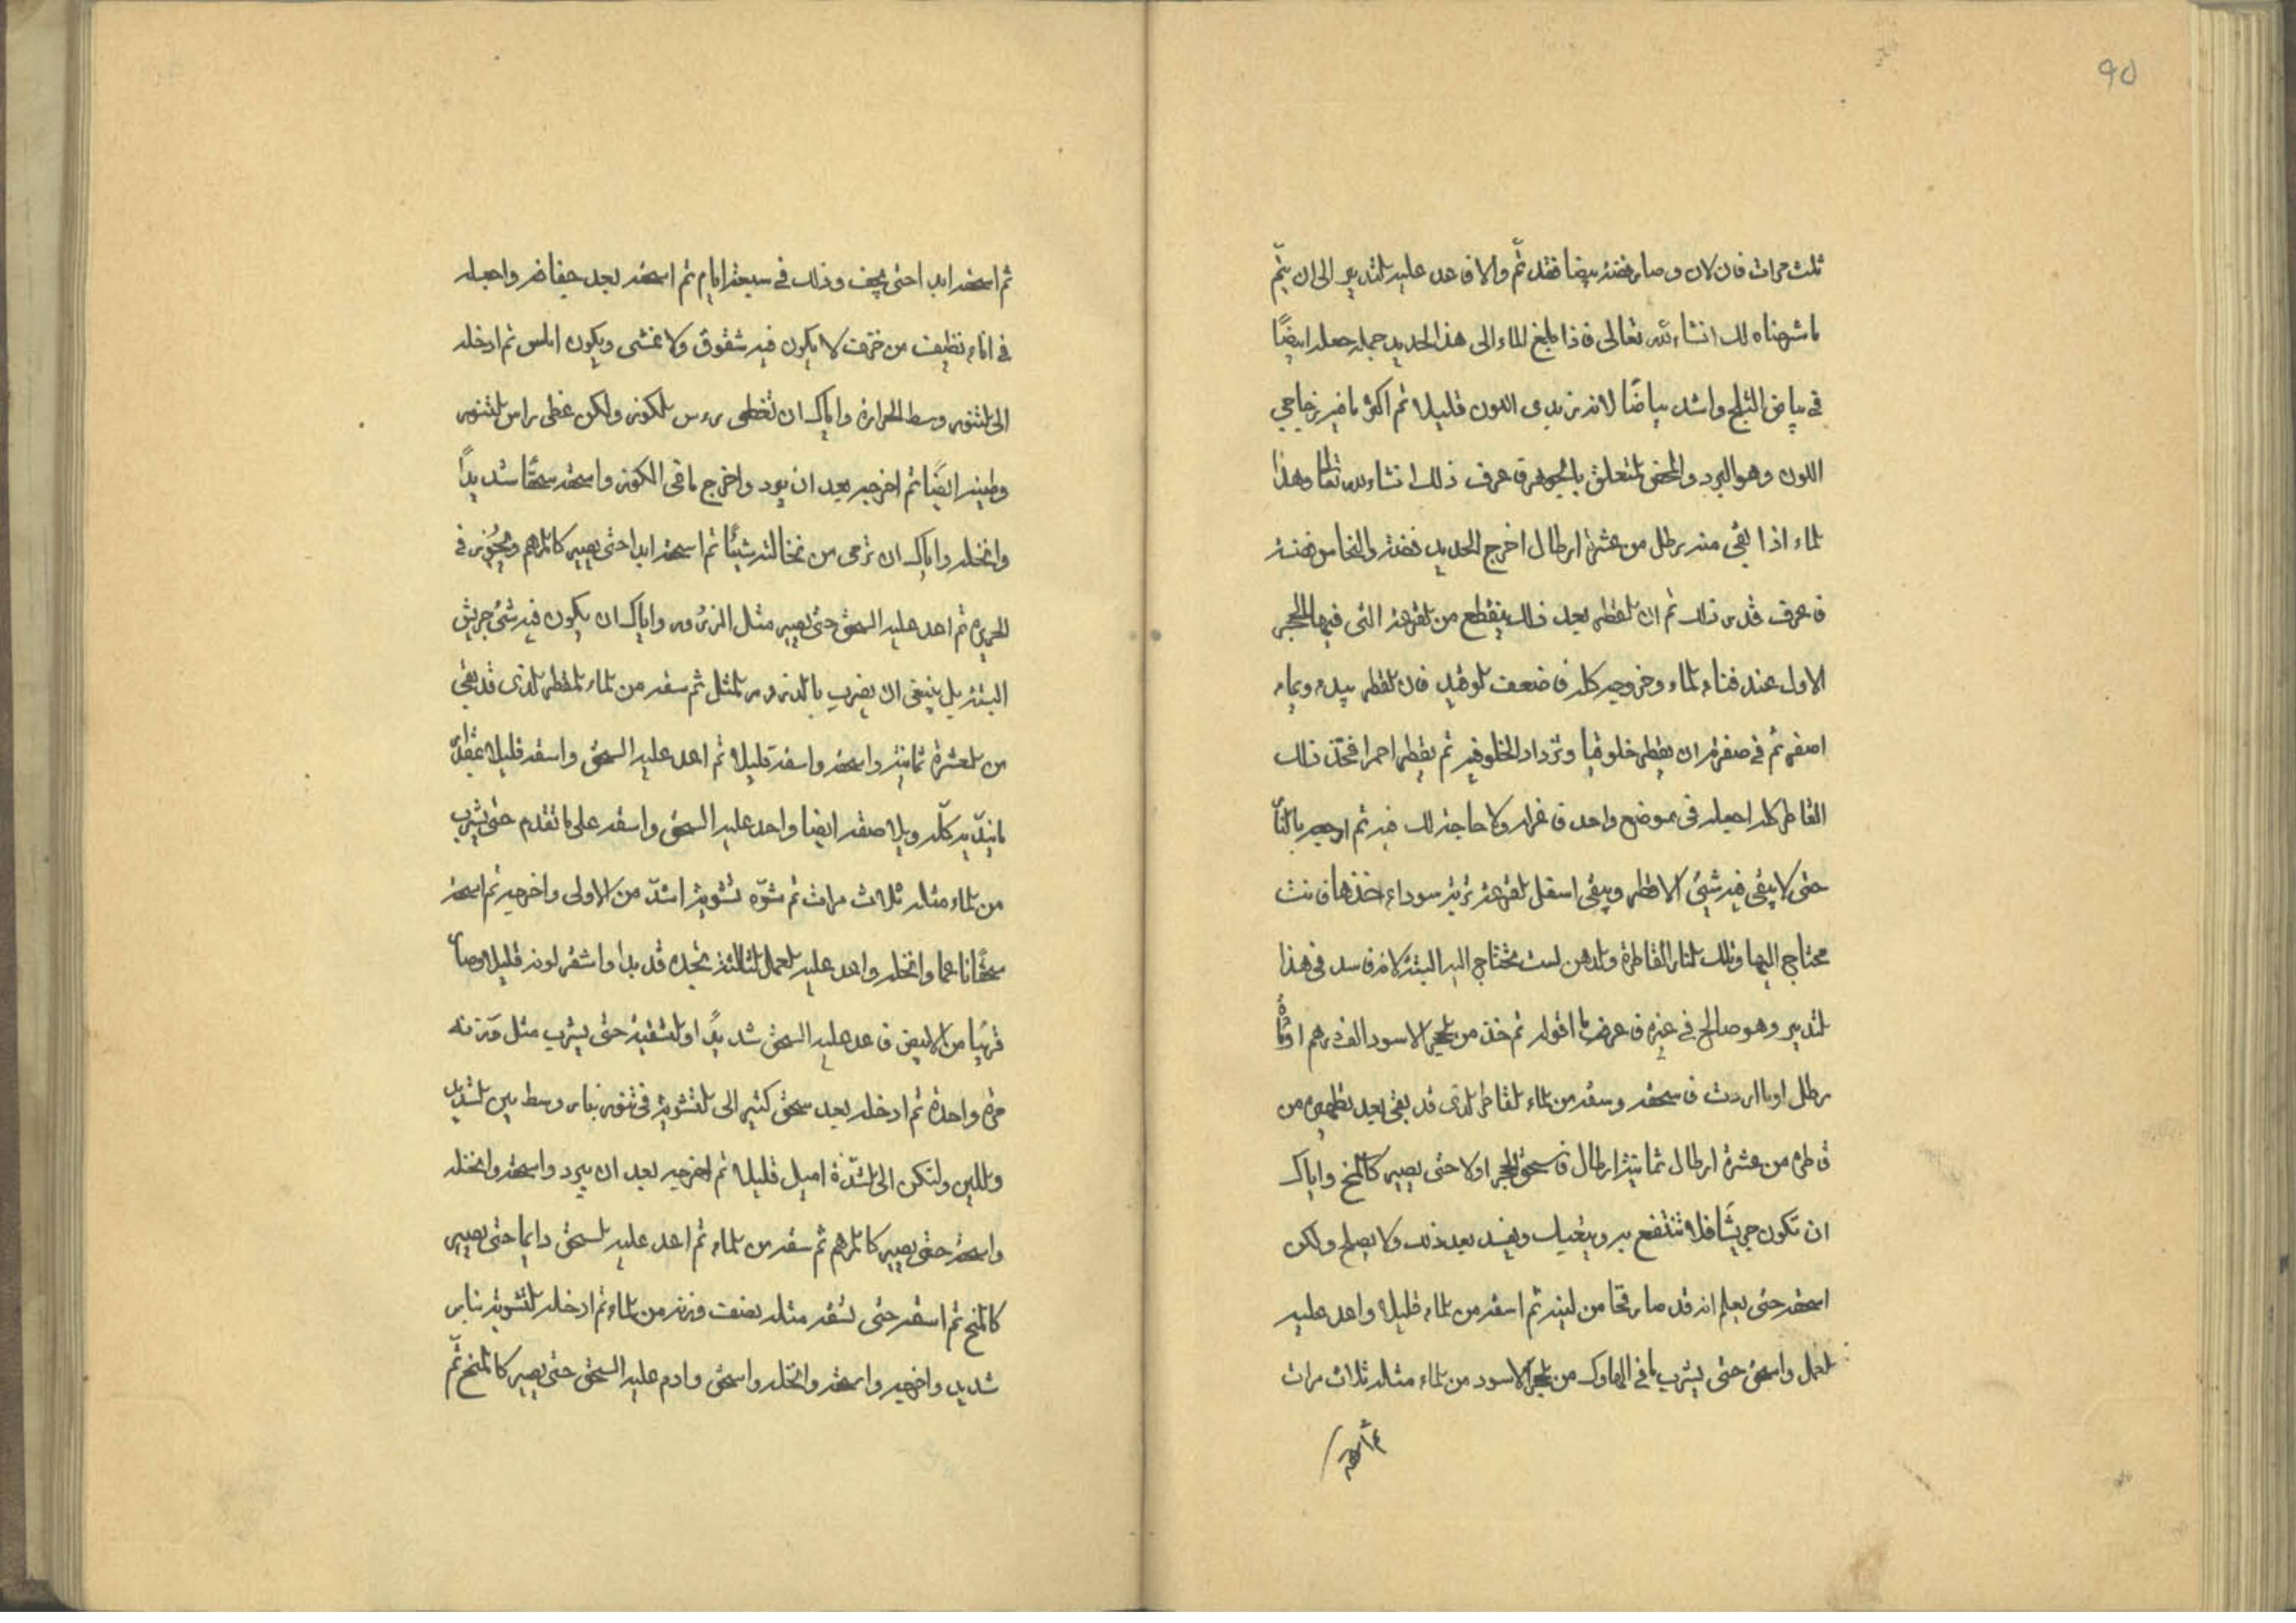 90
ثلث مرات فان لان وصار فضة بيضا فقد تم والا فاعد عليه التدبير الى ان يتم
ما شرحناه لك انشاء الله تعالى فاذا بلغ الماء الى هذا الحديد حمله جعله ابيضًا
في بياض الثلج واشد بياضًا لانه زبدي اللون قليلا ثم اكثر ما فيه زجاجي
اللون وهو البرد والمخض المتعلق بالجوهر فاعرف ذلك انشاء الله تعالى وهذا
الماء اذا بقي منه رطل من عشرة ارطال اخرج الحديد فضة والنحاس فضة
فاعرف قدر ذلك ثم ان القطر بعد ذلك ينقطع من القرعة التي فيها الحجر
الاول عند فناء الماء وخروجه كله فاضعف الوقيد فان القطر يبدء وبماء
اصفر ثم في صفرة ان يقطر خلوقيا وتزداد الخلوقية ثم يقطر احمرا فخذ ذلك
القاطر كله اجعله في موضع واحد فاعزله ولا حاجة لك فيه ثم اوجيه بالنار
حتى لا يبقى فيه شيئ الا قطر ويبقى اسفل القرعة تربة سوداء خذها فانت
محتاج اليها وتلك النار القاطرة والدهن لست تحتاج اليه البتة لانه فاسد في هذا
التدبير وهو صالح في غيره فاعرف ما اقول ثم خذ من الحجر الاسود الف درهم او مائة
رطل او ما اردت فاسحقه وسقه من الماء القاطر الذى قد بقي بعد تطهيره من
قاطره من عشرة ارطال ثمانية ارطال فاسحق الحجر اولا حتى يصير كالمخ واياك
ان تكون جريشًا فلا تنتفع به ويتعبك ويفسد بعد ذلك ولا يصلح ولكن
اسحقه حتى يعلم انه قد صار مخا من لينه ثم اسقه من الماء قليلا واعد عليه
العمل واسحق حتى يشرب ما في الهاوك من الحجر الاسود من الماء مثله ثلاث مرات
ثم اسحقه
ثم اسحقه ابدا حتى يجف وذلك في سبعة ايام ثم اسحقه بعد جفافه واجعله
في اناء نظيف من خزف لا يكون فيه شقوق ولا غشى ويكون املس ثم ادخله
الى التنور وسط الحرارة واياك ان تغطي رءس الكوز ولكن غطى راس التنور
وطينه ايضًا ثم اخرجه بعد ان يبرد واخرج ما في الكوز واسحقه سحقًا شديدًا
وانخله واياك ان ترمى من نخالته شيئًا ثم اسحقه ابدا حتى يصير كالمرهم ويجوز في
الحريرة ثم اعد عليه السحق حتى يصير مثل الذرور واياك ان يكون فيه شئ جريش
البتة بل ينبغي ان يضرب بالذرور المثل ثم سقه من الماء المقطر الذى قد بقي
من العشرة ثمانية واسحقه واسقه قليلا ثم اعد عليه السحق واسقه قليلا
ما يندّيه كلّه وبلا صقه ايضا واعد عليه السحق واسقه على ما تقدم حتى يشرب
من الماء مثله ثلاث مرات ثم شوّه تشوية اشدّ من الاولى واخرجه ثم اسحقه
سحقًا ناعما وانخله واعد عليه العمل الثالثة تجده قد بدا واشقر لونه قليلا وصار
قريبًا من الابيض فاعد عليه السحق شديدًا والتسقية حتى يشرب مثل وزنه
مرة واحدة ثم ادخله بعد سحق كثير الى التشوية في تنور بنار وسط بين الشديد
واللين ولتكن الى الشدّة اميل قليلا ثم اخرجه بعد ان يبرد واسحقه وانخله
واسحقه حتى يصير كالمرهم ثم سقه من الماء ثم اعد عليه السحق دايما حتى يصير
كالمخ ثم اسقه حتى تسقه مثله بضعف وزنه من الماء ثم ادخله التشوية بنار
شديد واخرجه واسحقه وانخله واسحق وادم عليه السحق حتى يصير كالمخ ثم